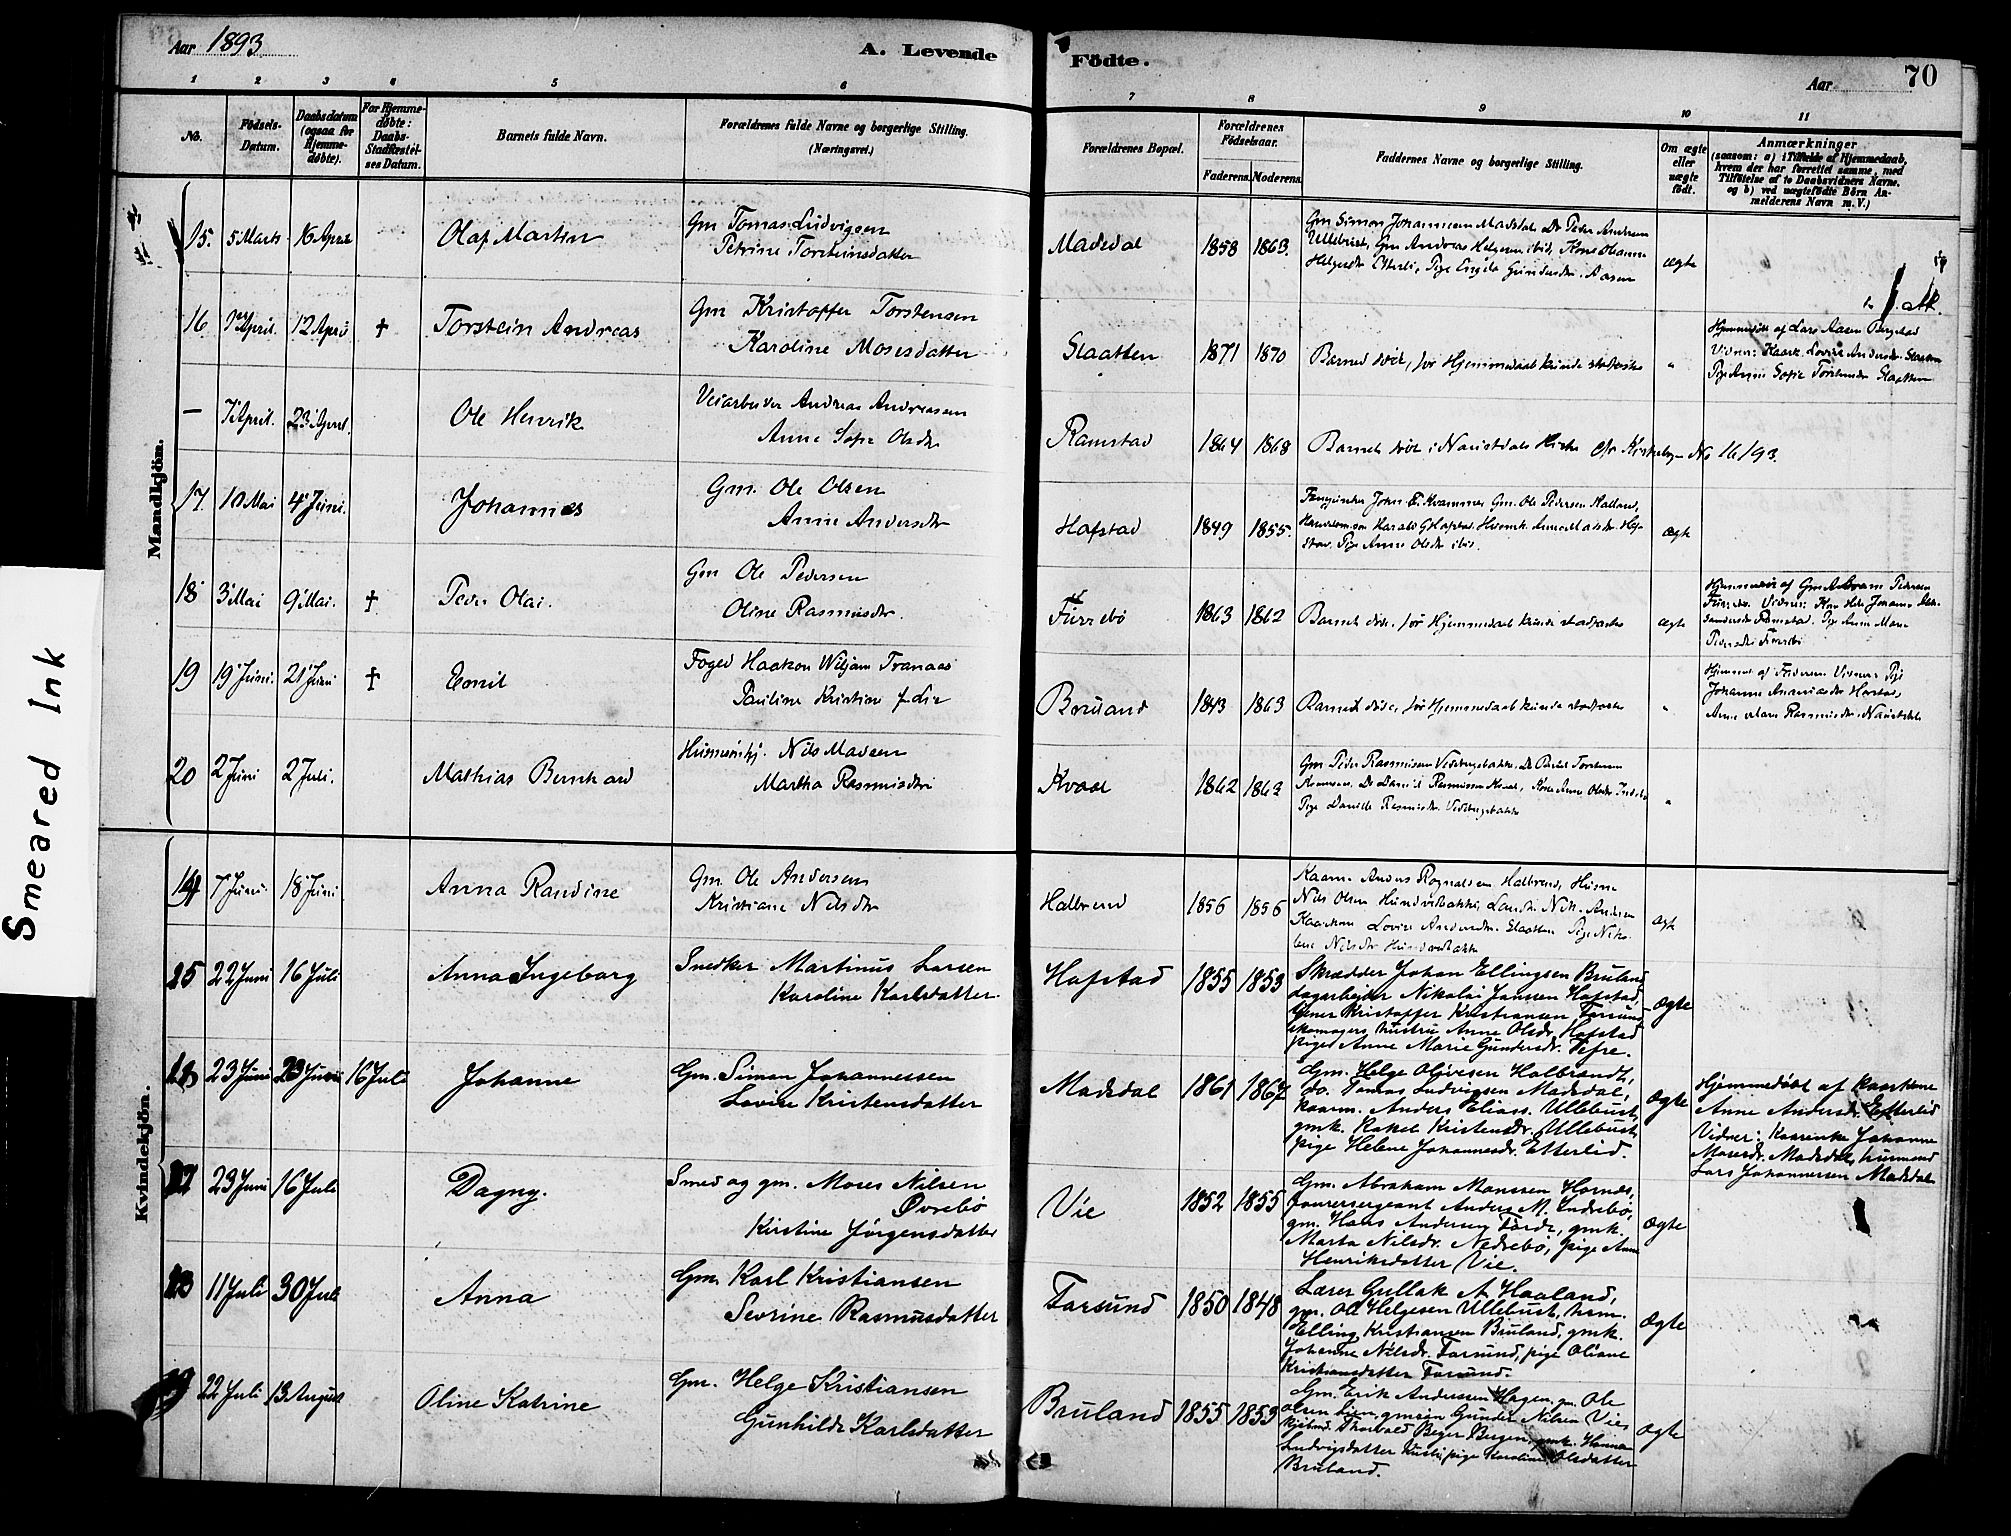 Aar 1893
A. Levende
Födte.
Aar
70
1 2 3 4 5 6 7 8 9 10 11
No.
Födsels-
Datum.
Daabsdatum
(ogsaa for
Hjemme-
døbte).
For Hjemme-
døbte:
Daabs-
Stadfæstel-
ses Datum.
Barnets fulde Navn.
Forældrenes fulde Navne og borgerlige Stilling.
(Næringsvei.)
Forældrenes Bopæl.
Forældrenes
Födselsaar.
Faderens. Moderens.
Faddernes Navne og borgerlige Stilling.
Om ægte
eller
uægte
födt.
Anmærkninger
(saasom: a) i Tilfælde af Hjemmedaab,
hvem der har forrettet samme, med
Tilföielse af to Daabsvidners Navne,
og b) ved uægtefödte Börn An-
melderens Navn m. V.)
Mandkjön.
15. 5 Marts 16 April Olaf Martin
Gm Tomas Ludvigsen
Petrine Torsteinsdatter
Madsdal 1858 1863.
Gm Simon Johannesen Madsdal Do Peder Andersen
Ullebust, Gm Andreas Helgesen ibid, Kone Oleanne
Helgesdtr Etterli, Pige Engela Gundersdtr. Aasen
ægte
16 1 April. 12 April † Torstein Andreas
Gm Kristoffer Torstensen
Karoline Mosesdatter
Slaatten 1871 1870
Barnet död, før Hjemmedaab kunde stadfæstes
"
Hjemmedöbt af Lars Aasen Bergstad
Vidner: Kaark. Lovise Andersdr. Slaatten
Pige Anne Sofie Torstensdr Slaatten
— 7 April. 23 April. Ole Henrik
Veiarbeider Andreas Andreassen
Anne Sofie Olsdtr
Ramstad 1864 1868
Barnet döbt i Naustdals Kirke cfr Kirkebogen No 16/93.
17. 10 Mai 4 Juni. Johannes
Gm. Ole Olsen
Anne Andersdtr
Hafstad 1849 1855.
Johan E. Kvammen, Gm. Ole Pedersen Halland,
ægte
18 3 Mai 9 Mai. † Peder Olai.
Gm Ole Pedersen
Oline Rasmusdtr.
Furrebö 1863 1862
Barnet döde, før Hjemmedaab kunde stadfæstes
ægte
Hjemmedöbt af Gm Abram Pedersen
Furrebö. Vidner:
Ramstad. Pige Anne Marie
Pedersdtr Furrebö
19 19 Juni. 21 Juni † Emil
Foged Haakon Wiljam Tranaas
Pauline Kristine f. Lie
Bruland 1843 1863
Barnet döde, før Hjemmedaab kunde stadfæstes
"
Hjemmed. af Faderen Vidner: Pige
Johanne
Anne Rasmusdtr. Naustdal
20 2 Juni 2 Juli. Mathias Bernhard
Husmand. Nils Madsen
Martha Rasmusdtr
Kvaal 1862 1862
Gm Peder Rasmusen Do Torstensen
Do Daniel Rasmussen Kone Anne Olsdtr
Pige Danielle Rasmusdtr.
"
Kvindekjön.
14 7 Juni 18 Juni Anna Randine
Gm. Ole Andersen
Kristiane Nilsdtr
Halbrend 1856 1856
Kaarm. Anders Rognaldsen Halbrend, Husm
Nils Olsen
Kaarkone Lovise Andersdtr. Slaatten Pige Niko-
line Nilsdtr
ægte
15 22 Juni 16 Juli Anna Ingeborg
Snedker Martinus Larsen
Karoline Karlsdatter
Hafstad 1855 1853
Skrædder Johan Ellingsen Bruland
dagarbeider Nikolai Janssen Hafstad,
Kristoffer Kristiansen Farsund
skomagers hustru Anne Olsdr. Hafstad
pige Anne Marie Gundersdr. Tefre.
ægte
23 Juni 23 Juni 16 Juli Johanne
Gm. Simon Johannessen
Lovise Kristensdatter
Madsdal 1861 1867
Gm. Helge Oliversen Halbrandt,
do. Tomas Ludvigsen Madsdal,
kaarm. Anders Eliass. Ullebust,
gmk. Rakel Kristensdr. Ullebust
pige Helene Johannesdr. Etterlid.
ægte
Hjemmedöbt af kaarkone
Anne Andersdr. Etterlid
Vidner: Kaarenke Johanne
Mosesdr. Madsdal, husmand
Lars Johannessen Madsdal
17 23 Juni 16 Juli Dagny.
Smed og gm. Moses Nilsen
Øvrebö
Kirstine Jörgensdatter
Vie 1852 1855
Gm. Abraham Monssen Hornes,
fourersergeant Anders M. Indrebö,
gm. Hans Andersen Förde, gmk.
Marta Nilsdr. Nedrebö, pige Anne
Henriksdatter Vie.
ægte
11 Juli 30 Juli Anna
Gm. Karl Kristiansen
Sevrine Rasmusdatter
Farsund 1850 1848
Lærer Gullak A. Haaland,
gm. Ole Helgesen Ullebust, husm.
Elling Kristiansen Bruland, gmk.
Johanne Nilsdr. Farsund, pige Oliane
Kristiansdatter Farsund.
ægte
22 Juli 13 August Oline Katrine
Gm. Helge Kristiansen
Gunhilde Karlsdatter
Bruland 1855 1853
Gm. Erik Anderssen Hagen, gm. Ole
Olsen Lien, gmsön Gunder Nilsen Vie,
Thorvald Beyer Bergen, gmk. Hanna
Ludvigsdatter pige Karoline Olsdatter
Bruland.
ægte
Smeared Ink